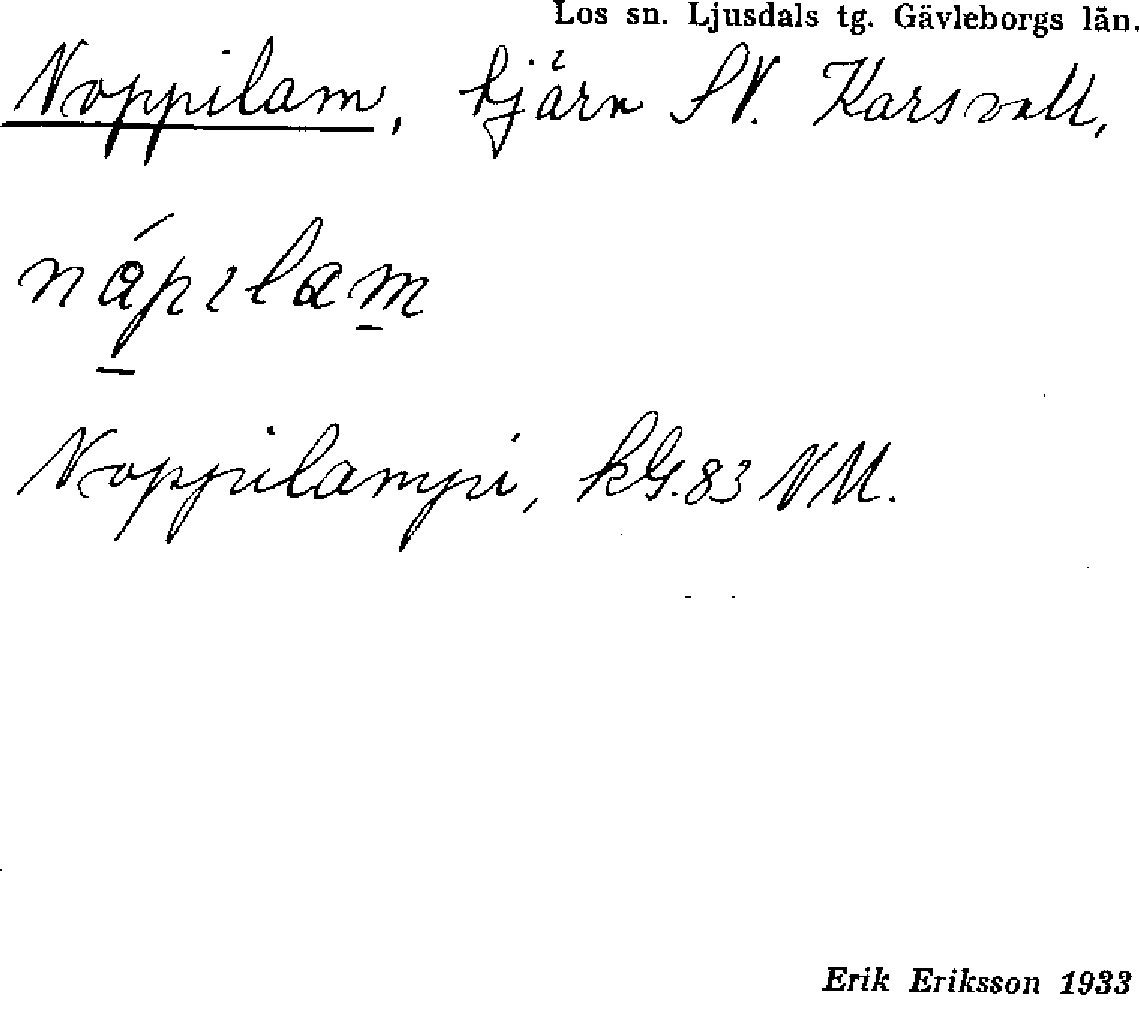 Los sn. Ljusdals tg. Gävleborgs län.
Noppilam, tjärn SV. Karsvall,
nåpilam
Noppilampi, kG. 83 NM.
Erik Eriksson 1933